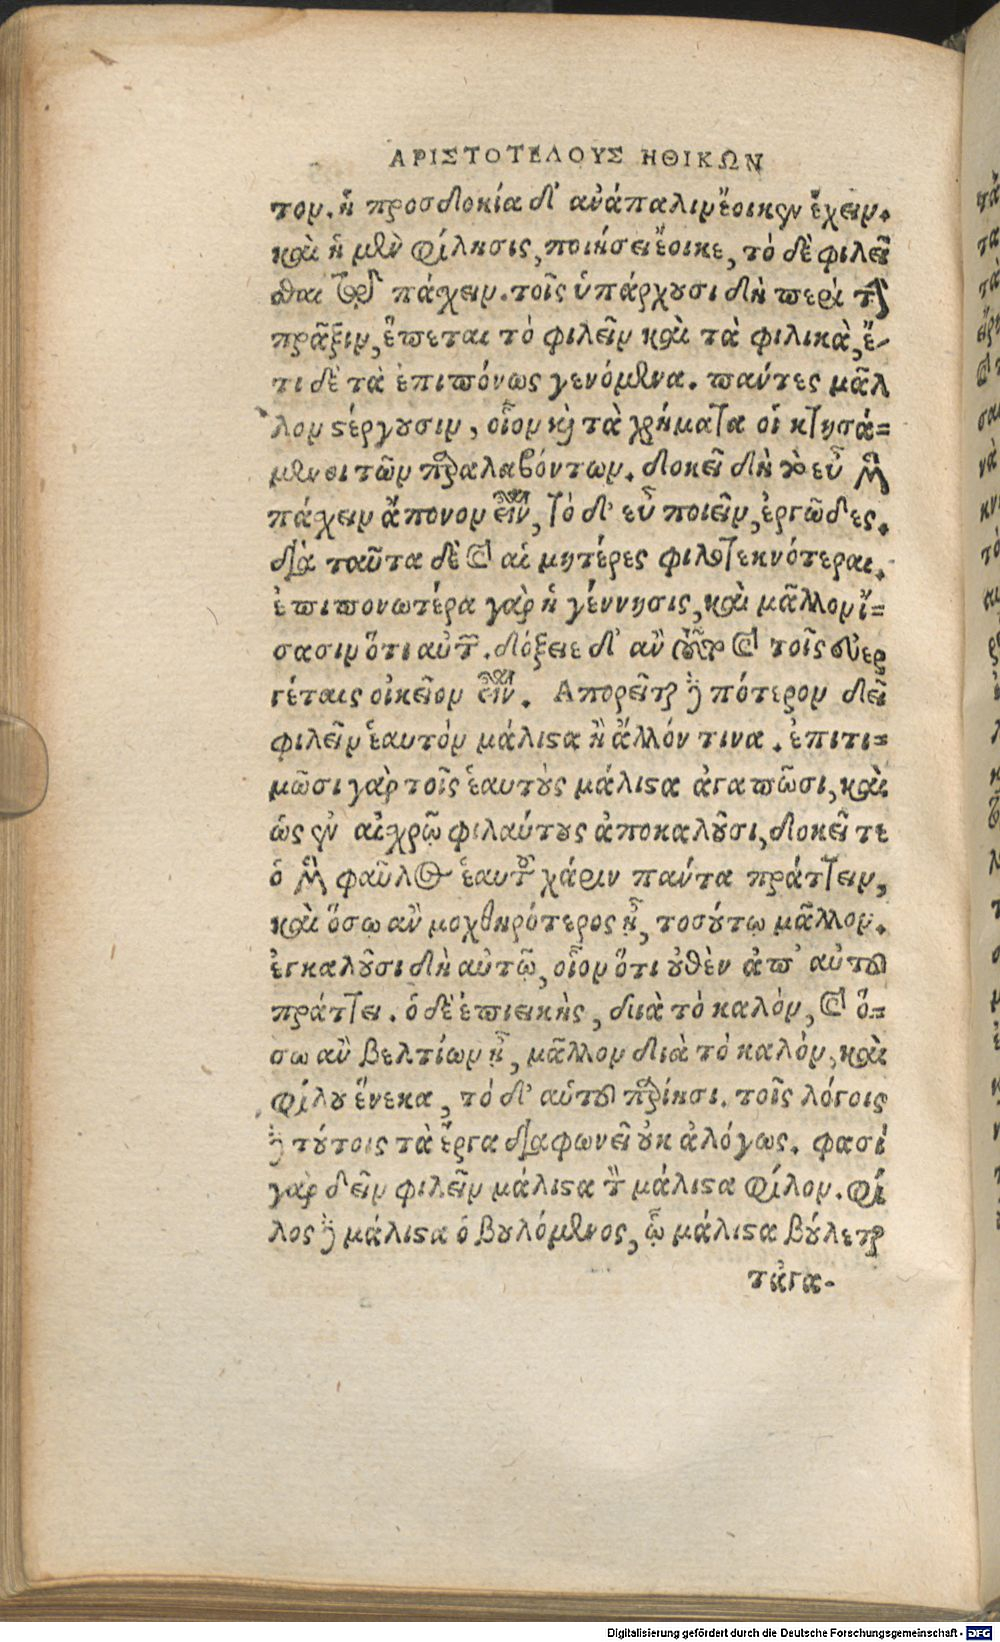 ΑΡΙΣΤΟΤΕΛΟΥΣ ΗΘΙΚΩΝ
τον. ἡ προσδοκία δ' ἀνάπαλιν ἔοικεν ἔχειν.
καὶ ἡ μὲν φίλησις, ποιήσει ἔοικε, τὸ δὲ φιλεῖ
σθαι τῷ πάσχειν. τοῖς ὑπάρχουσι δὴ περὶ τὴν
πρᾶξιν, ἕπεται τὸ φιλεῖν καὶ τὰ φιλικὰ, ἔ-
τι δὲ τὰ ἐπιπόνως γενόμενα. πάντες μᾶλ
λον στέργουσιν, οἷον καὶ τὰ χρήματα οἱ κτησά=
μενοι τῶν παραλαβόντων. δοκεῖ δὴ τὸ εὖ μὲν
πάσχειν ἄπονον εἶναι, τὸ δ' εὖ ποιεῖν, ἐργῶδες.
διὰ ταῦτα δὲ καὶ αἱ μητέρες φιλοτεκνότεραι.
ἐπιπονωτέρα γὰρ ἡ γέννησις, καὶ μᾶλλον ἴ=
σασιν ὅτι αὐτῶν. δόξειε δ' ἂν τοῦτο καὶ τοῖς εὐερ
γέταις οἰκεῖον εἶναι. Απορεῖται δὲ πότερον δεῖ
φιλεῖν ἑαυτὸν μάλιστα ἢ ἄλλόν τινα. ἐπιτι=
μῶσι γὰρ τοῖς ἑαυτοὺς μάλιστα ἀγαπῶσι, καὶ
ὡς ἐν αἰσχρῷ φιλαύτους ἀποκαλοῦσι, δοκεῖ τε
ὁ μὲν φαῦλος ἑαυτοῦ χάριν πάντα πράττειν,
καὶ ὅσω ἂν μοχθηρότερος ᾖ, τοσούτῳ μᾶλλον.
ἐγκαλοῦσι δὴ αὐτῷ, οἷον ὅτι οὐθὲν ἀπ' αὐτοῦ
πράττει. ὁ δὲ ἐπιεικὴς, διὰ τὸ καλὸν, καὶ ὅ=
σω ἂν βελτίων ᾖ, μᾶλλον διὰ τὸ καλὸν, καὶ
φίλου ἕνεκα, τὸ δ' αὑτοῦ παρίησι. τοῖς λόγοις
δὲ τούτοις τὰ ἔργα διαφωνεῖ οὐκ ἀλόγως. φασὶ
γὰρ δεῖν φιλεῖν μάλιστα τὸν μάλιστα φίλον. φί
λος δὲ μάλιστα ὁ βουλόμενος, ᾧ μάλιστα βούλεται
τἀγα-
Digitalisierung gefördert durch die Deutsche Forschungsgemeinschaft - DFG